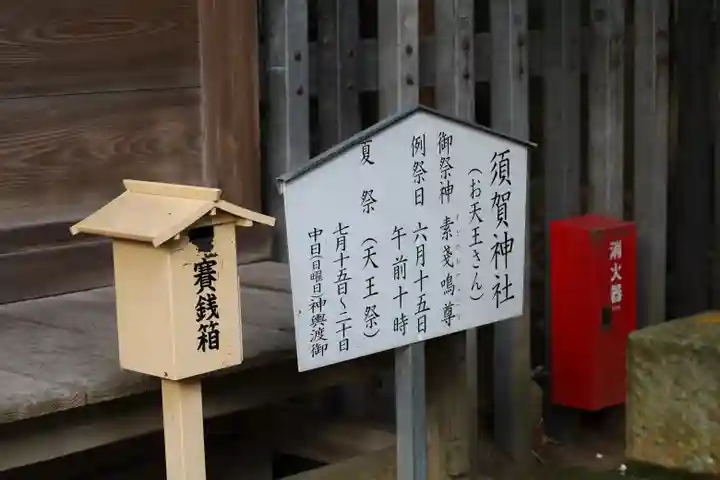 須賀神社
（お天王さん）
御祭神 素戔嗚尊
例祭日 六月十五日
午前十時
夏祭（天王祭）
七月十五日～二十日
中日（日曜日）神輿渡御
賽銭箱
消火器